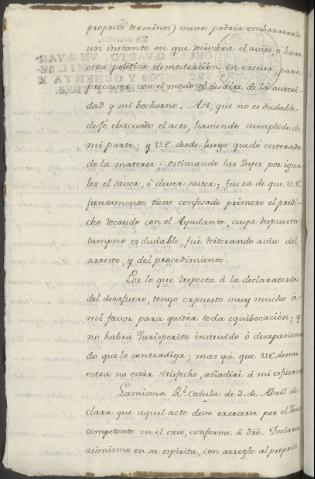 proprios terminos) menos podria embarazarle
un instante en que reiterára el aviso, ó hacer
otra politica demostracion en excusa, para
precaver con el modo el desaire de la autori-
dad y mi bochorno. Asi, que no es dudable
dejé ebacuado el acto, haviendo cumplido de
mi parte: y V.E. desde luego quedó enterado
de la materia: estimando las Leyes por igua-
les el saver, ó dever saver; fuera de que V.E.
juntamente tiene confesado primero el predi-
cho recaudo con el Ayudante, cuya respuesta
tampoco es dudable, fué reiterando aviso del
arresto, y del procedimiento.
Por lo que respecta á la declaratoria
del desafuero, tengo expuesto muy mucho á
mi favor para quitar toda equibocación; y
no habrá Jurisperito instruido ó desapasiona-
do que lo contradiga; mas yá que V.E. demu-
estra no estar satisfecho, añadiré á mi esfuerzo
La misma Rl. Cedula de 3. de Abril de-
clara que aquel acto deve exercerse por el Juez
competente en el caso, conforme á dro. Declara
asimismo en su espiritu, con arreglo al propio